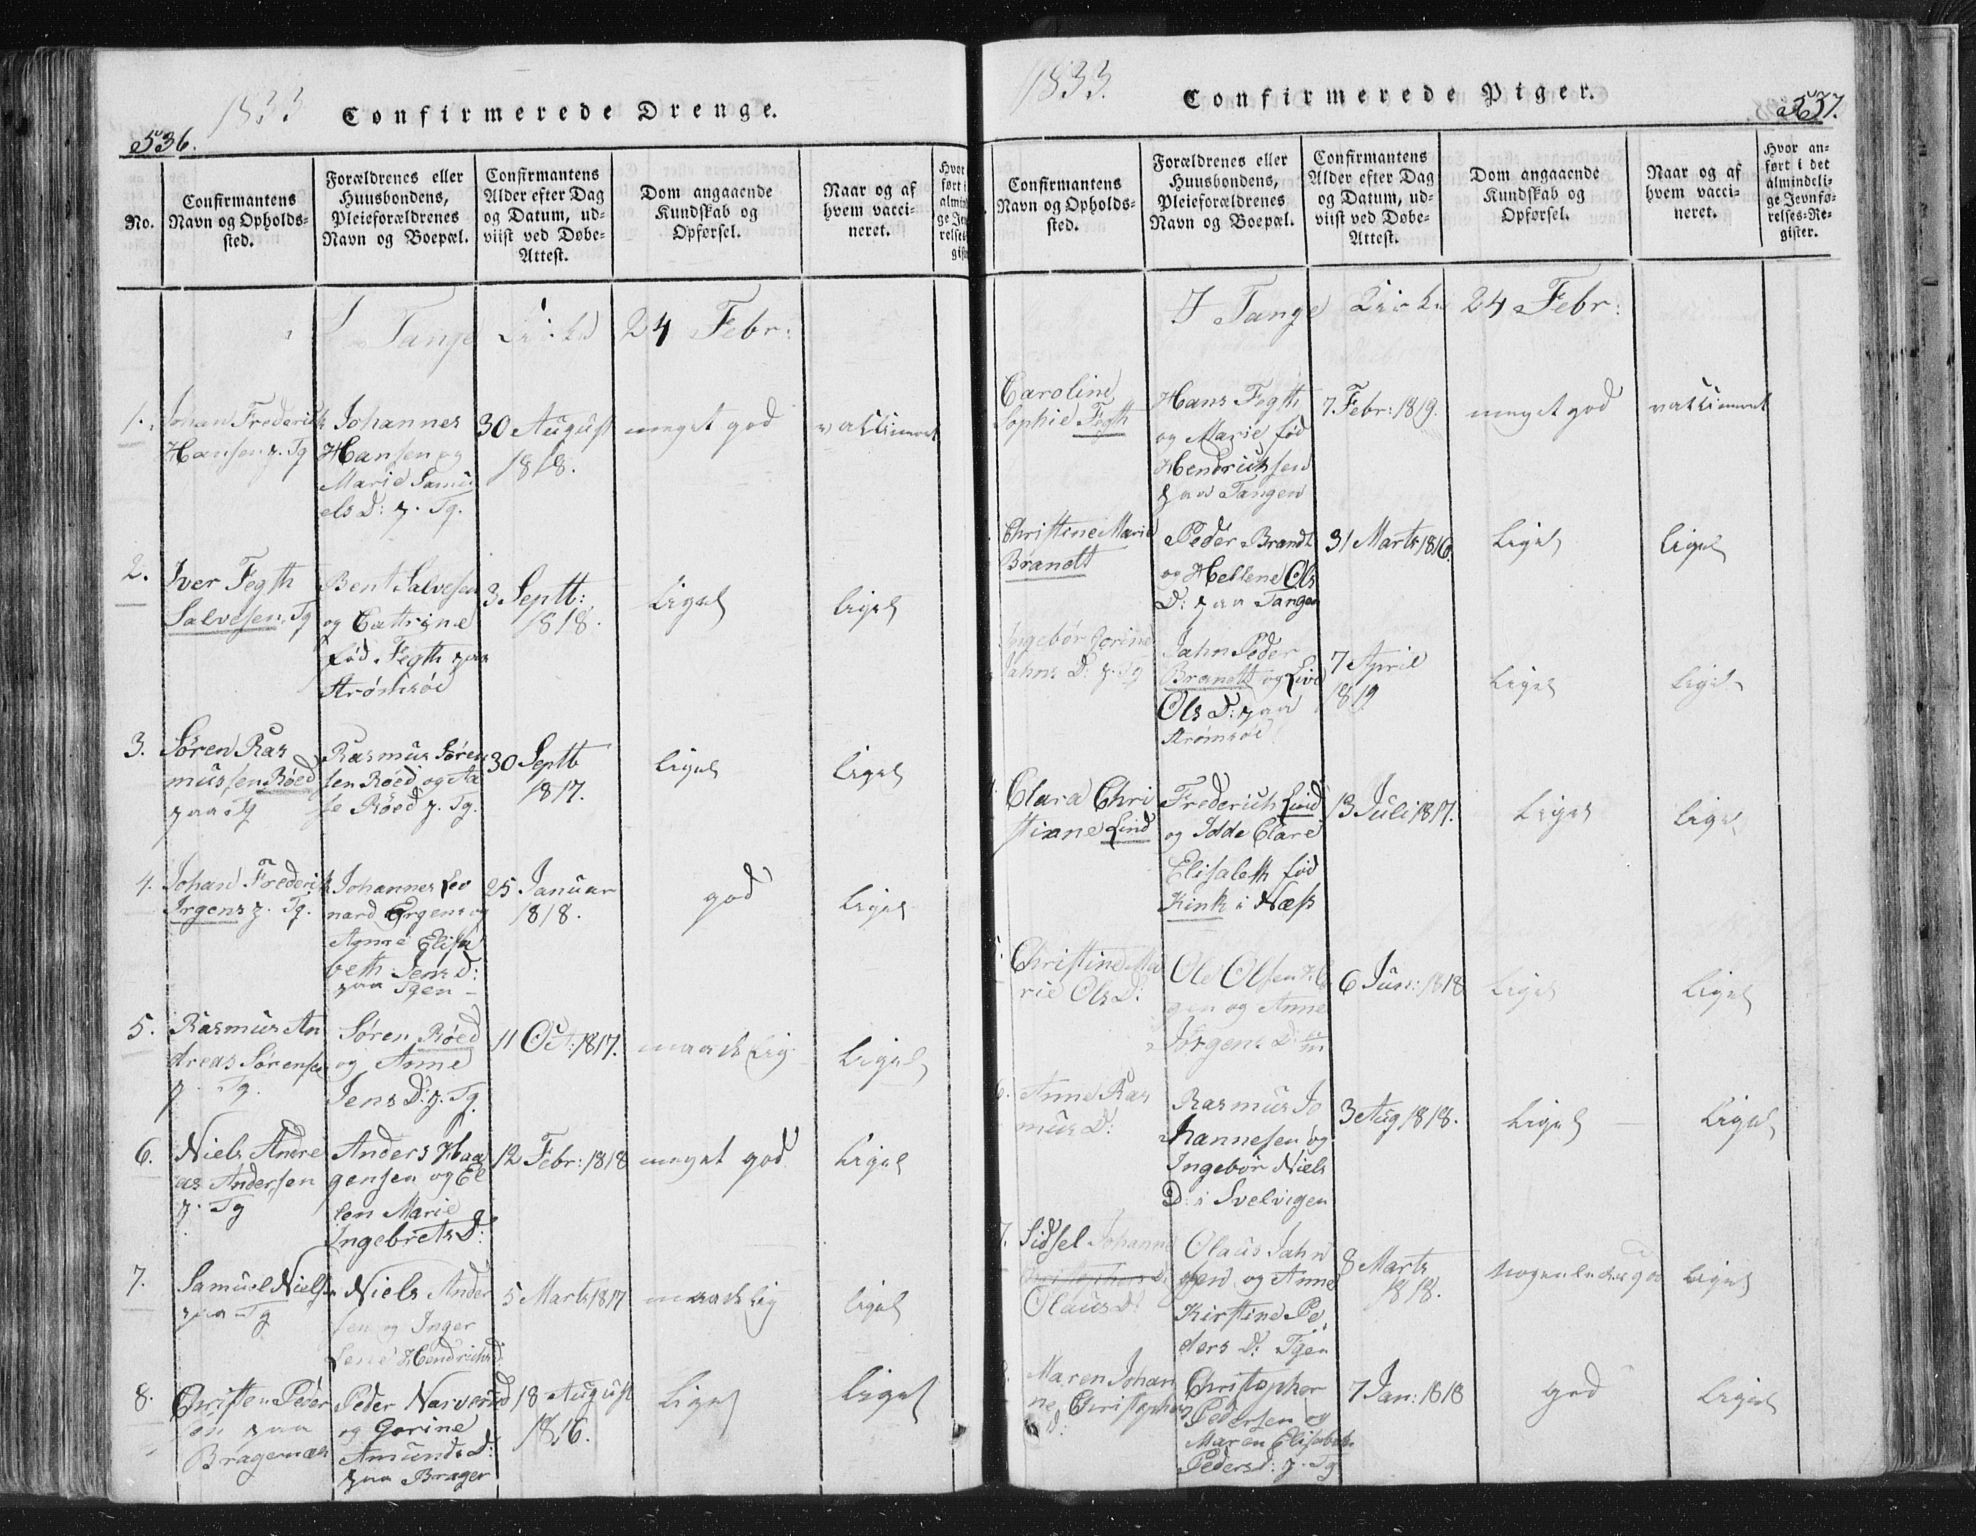 1833
Confirmerede Drenge.
536.
No.
Confirmantens
Navn og Opholds-
sted.
Forældrenes eller
Huusbondens,
Pleieforældrenes
Navn og Boepæl.
Confirmantens
Alder efter Dag
og Datum, ud-
viist ved Døbe-
Attest.
Dom angaaende
Kundskab og
Opførsel.
Naar og af
hvem vacci-
neret.
Tange Kirke 24 Febr:
1.
Johan Frederick
Hansen p. Tg
Johannes
Hansen og
Marie Samu
els D: p. Tg.
30 August
1818.
meget god
vaccineret
2.
Iver Fegth
Salvesen, Tg
Bent Salvesen
og Cattrine
fød Fegth paa
Strømsøe
3 Septb:
1818.
Ligel
Ligel
3.
Søren Ras
mussen Röed
paa Tg
Rasmus Søren
sen Röed og Aa
se Röed p. Tg.
30 Septb
1817.
Ligel
Ligel
4.
Johan Frederik
Irgens p. Tg.
Johannes Leo
nard Irgens og
Anne Elisa
beth Jens D:
paa Tgen
25 Januar
1818.
god
Ligel
5.
Rasmus An
dreas Sørensen
p. Tg.
Søren Röed
og Anne
Jens D: p. Tg.
11 Oct: 1817.
maadelig
Ligel
6.
Niels Andre
as Andersen
p. Tg
Anders Haa
gensen og El
len Marie
Ingebrets D:
12 Febr: 1818
meget god
Ligel
7.
Samuel Nielsen
paa Tg
Niels Ander
sen og Inger
Lene Hendrichs D
5 Marts 1817
maadelig
Ligel
8.
Christen Peder
sen paa
Bragernæs
Peder Narverud
og Gorine
Amunds D:
paa Brager
18 August
1816.
Ligel
Ligel
1833.
Confirmerede Piger.
537.
Confirmantens
Navn og Opholds-
sted.
Forældrenes eller
Huusbondens,
Pleieforældrenes
Navn og Boepæl.
Confirmantens
Alder efter Dag
og Datum, ud-
viist ved Døbe-
Attest.
Dom angaaende
Kundskab og
Opførsel.
Naar og af
hvem vacci-
neret.
Hvor an-
ført i det
almindeli-
ge Jevnfø-
relses-Re-
gister.
I Tange Kirke 24 Febr:
Caroline
Sophie Fegth
Hans Fegth
og Marie fød
Hendrichsen
paa Tangen
7 Febr: 1819.
meget god
vaccineret
Christine Marie
Brandt
Peder Brandt
og Hellene Ols
D: paa Tangen
31 Marts 1816.
Ligel
Ligel
Ingebør Gorine
Jahns D: p. Tg
Jahn Peder
Brandt og Live
Ols D: paa
Strømsøe
7 April
1819
Ligel
Ligel
Clara Chri
stiane Lind
Frederich Lind
og Idde Clare
Elisabeth fød
Kink i Næss
13 Juli 1817.
Ligel
Ligel
Christine Ma
rie Ols D:
Ole Olsen
gen og Anne
Jørgens D:
6 Jun: 1818
Ligel
Ligel
6.
Anne Ras
mus D:
Rasmus Jo
hannesen og
Ingebør Niels
D: i Svelvigen
3 Aug 1818.
Ligel
Ligel
7.
Sidsel Johanne
Olaus D:
Olaus Jahn
sen og Anne
Kirstine Pe
ders D: Tgen
8 Marts
1818.
nogenledes god
Ligel
Maren Johan
ne Christophers
D:
Christopher
Pedersen og
Maren Elisabeth
Pedersd: p. Tg
7 Jan: 1818
god
Ligel